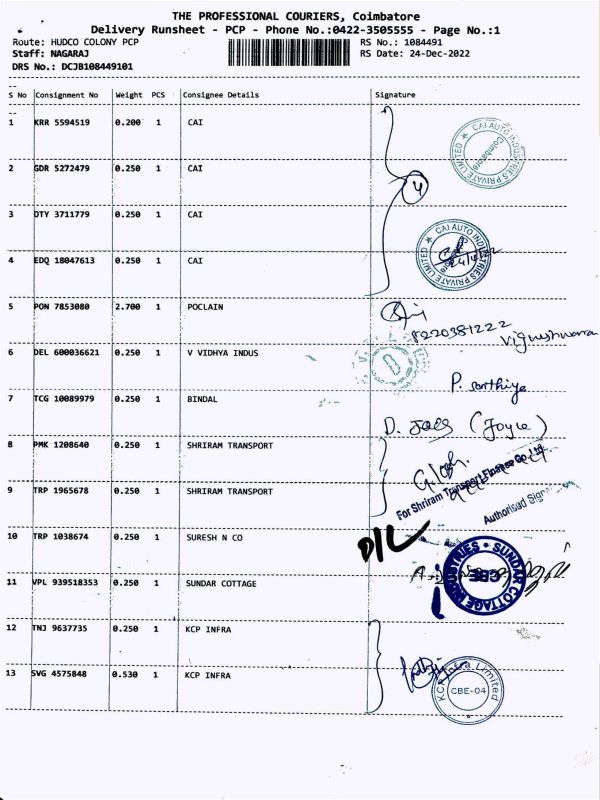 THE PROFESSIONAL COURIERS, Coimbatore
Delivery Runsheet - PCP - Phone No.:0422-3505555 - Page No.:1
Route: HUDCO COLONY PCP RS No.: 1084491
Staff: NAGARAJ RS Date: 24-Dec-2022
DRS No.: DCJB108449101
S No Consignment No Weight PCS Consignee Details Signature
1 KRR 5594519 0.200 1 CAI
CAI AUTO INDUSTRIES PRIVATE LIMITED Coimbatore
2 GDR 5272479 0.250 1 CAI
4
3 DTY 3711779 0.250 1 CAI
4 EDQ 18047613 0.250 1 CAI
CAI AUTO INDUSTRIES PRIVATE LIMITED
5 PON 7853080 2.700 1 POCLAIN
8220381222
6 DEL 600036621 0.250 1 V VIDHYA INDUS
7 TCG 10089979 0.250 1 BINDAL
D. (Joyce)
8 PMK 1208640 0.250 1 SHRIRAM TRANSPORT
For Shriram Transport Finance Co. Ltd.
9 TRP 1965678 0.250 1 SHRIRAM TRANSPORT
Authorised
10 TRP 1038674 0.250 1 SURESH N CO
D/L
11 VPL 939518353 0.250 1 SUNDAR COTTAGE
SUNDAR COTTAGE INDUSTRIES CBE
12 TNJ 9637735 0.250 1 KCP INFRA
13 SVG 4575848 0.530 1 KCP INFRA
KCP Infra Limited CBE-04